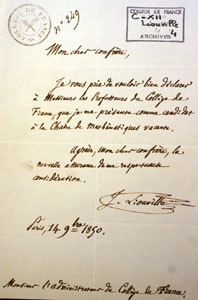 N.º 249
COLLEGE DE FRANCE
C-XII
Liouville
4
ARCHIVES
Mon cher confrère,
Je vous prie de vouloir bien déclarer
à Messieurs les Professeurs du Collège de
France, que je me présente comme candidat
à la Chaire de mathématiques vacante.
Agréez, mon cher confrère, la
nouvelle assurance de ma respectueuse
considération.
J. Liouville
Paris, 24 9bre 1850.
Monsieur l'administrateur du Collège de France.